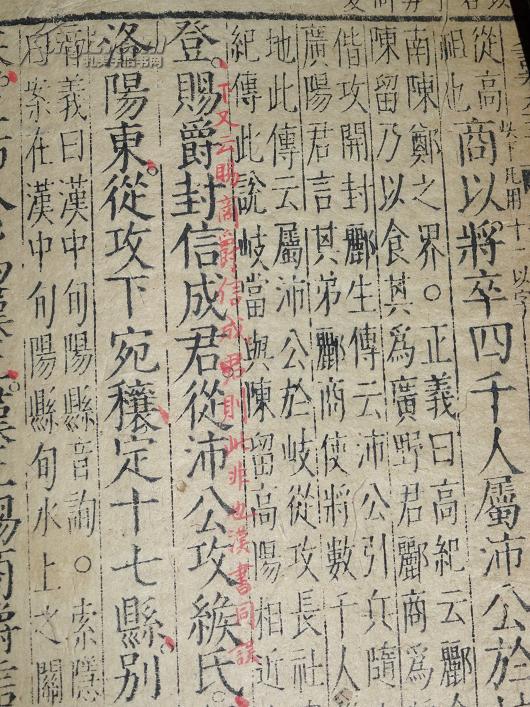 從高
祖也
商以將卒四千人屬沛公於
南陳鄭之界○正義曰高紀云酈
陳留乃以食其為廣野君酈商為
偕攻開封酈生傳云沛公引兵隨
廣陽君言其弟酈商使將數千人
地此傳云屬沛公於岐從攻長社
紀傳此說岐當與陳留高陽相近
下又云賜商爵信成君則此非也漢書同誤
登賜爵封信成君從沛公攻緱氏
洛陽東從攻下宛穰定十七縣別
義曰漢中旬陽縣音詢○索隱
案在漢中旬陽縣旬水上之關